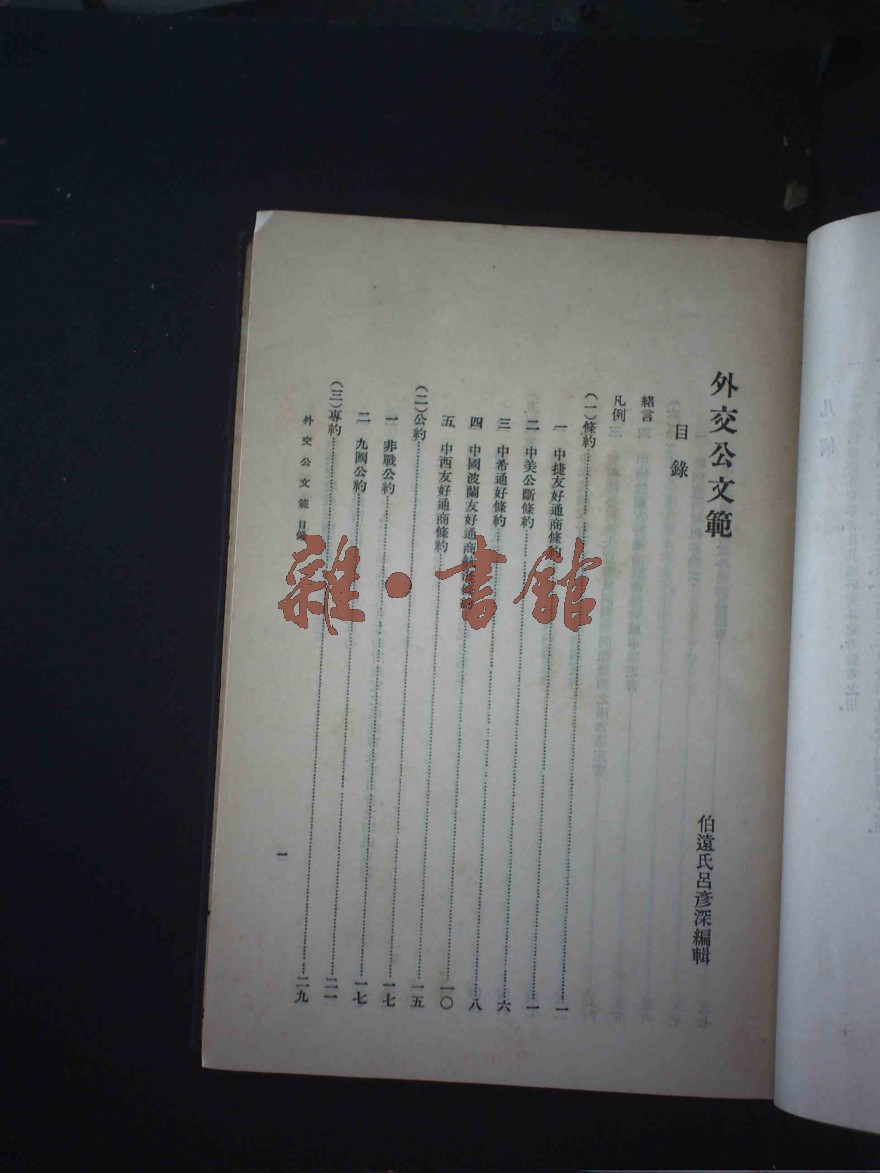 外交公文範
目錄
伯遠氏呂彥深編輯
緒言
凡例
(一)條約……一
一 中捷友好通商條約……一
二 中美公斷條約……六
三 中希通好條約……八
四 中國波蘭友好通商航海條約……一〇
五 中西友好通商條約……一五
(二)公約……一七
一 非戰公約……一七
二 九國公約……二一
(三)專約……二九
外交公文範 目錄
一
雜·書館